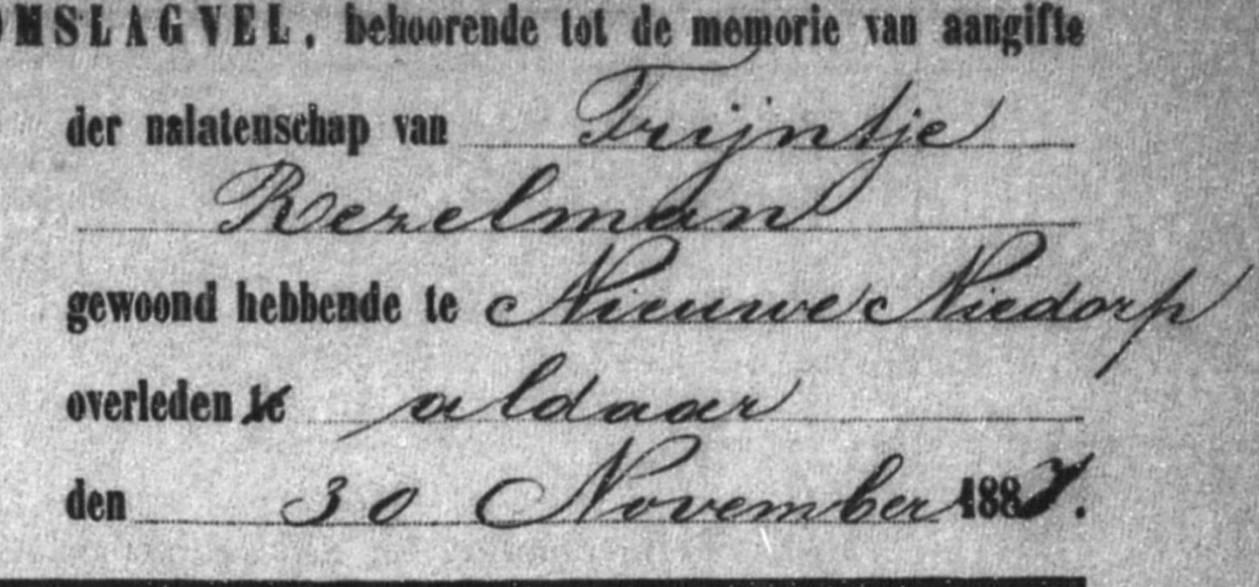 OMSLAGVEL, behoorende tot de memorie van aangifte
der nalatenschap van Trijntje
Rezelman
gewoond hebbende te Nieuwe Niedorp
overleden te aldaar
den 30 November 1887.